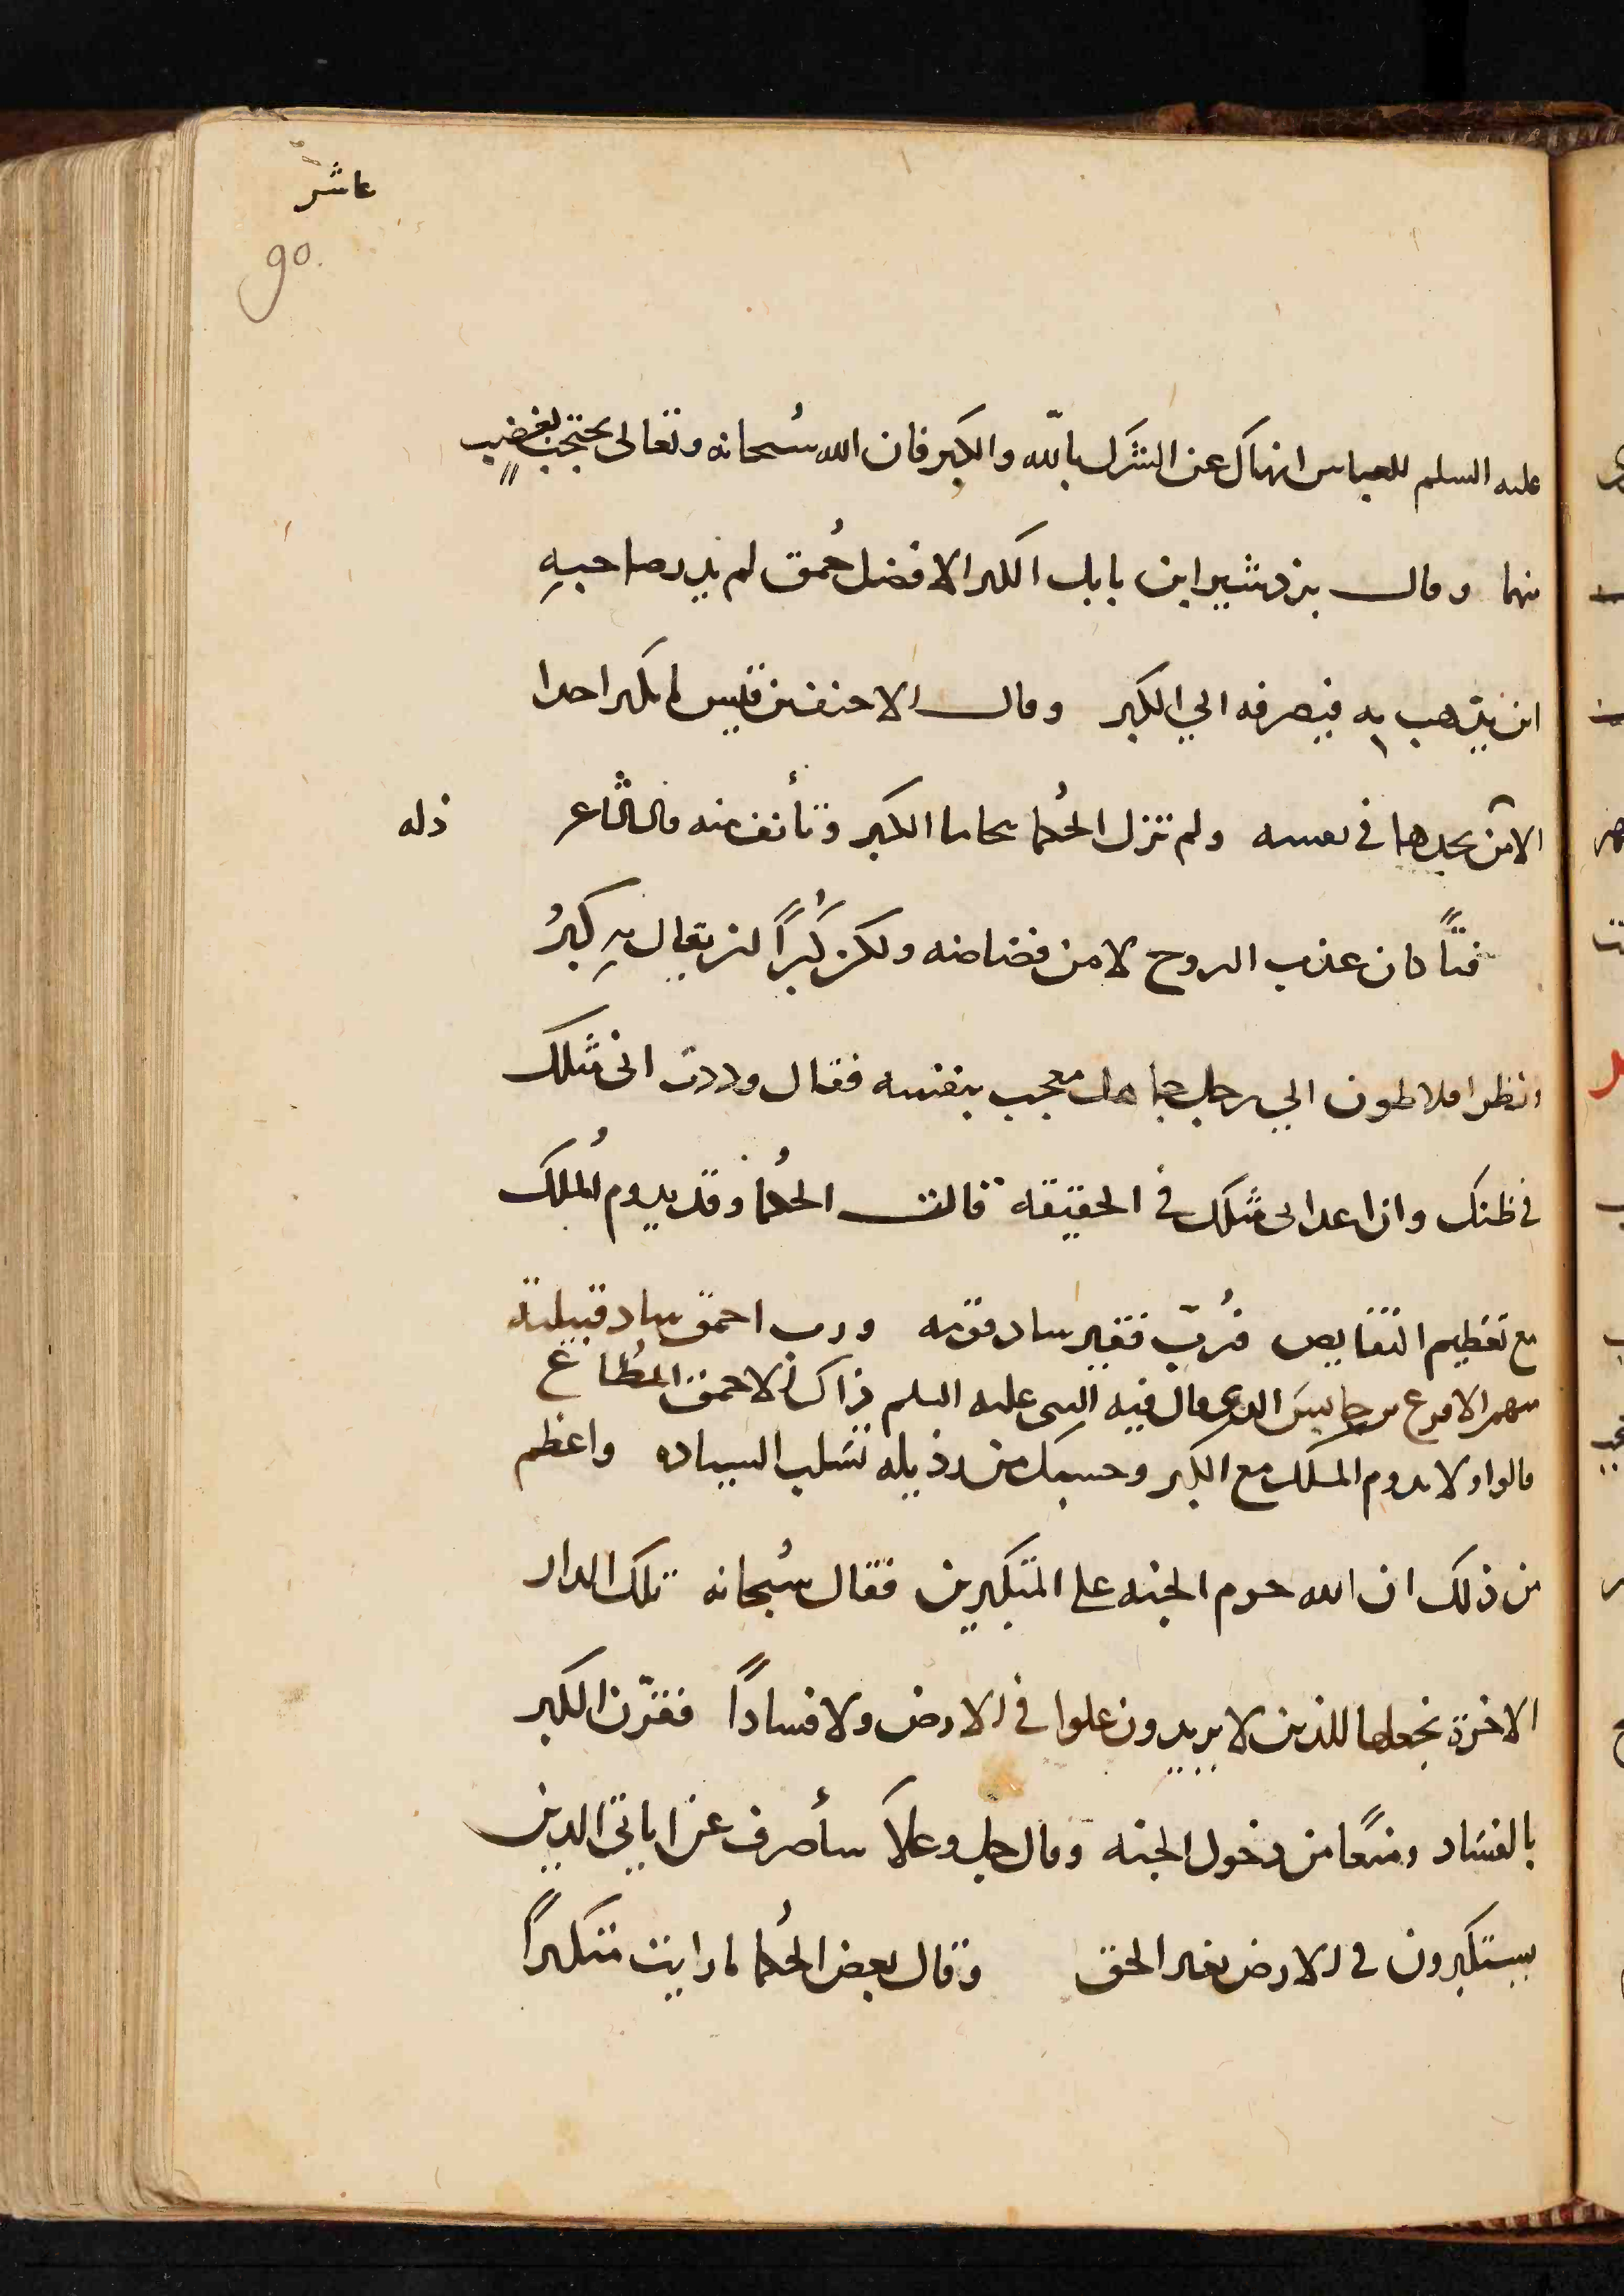 عاشر
90.
عليه السلم للعباس انهاك عن الشرك بالله والكبر فان الله سُبحانه وتعالى يحتجب بغضب
منهما وقال بزدشير ابن بابك الكبر الا فضل حُمق لم يدر صاحبهِ
اين يذهب به فيصرفه الي الكبر وقال الاحنف بن قيس ما تكبر احدا
الا من يجدها في نفسه ولم تزل الحُكما تتحاما الكبر وتأنف منه قال الشاعر ذله
فتاً كان عذب الروح لا من غضاضه ولكن كُبراً لن يقال بهِ كبرُ
ونظر افلاطون الي رجل جاهل معجب بنفسه فقال وددت اني مثلك
في ظنك وان اعداي مثلك في الحقيقه قالت الحُكما وقد يدوم المُلك
مع تعظيم النقايص فرُبّ فقير ساد قومه ورب احمق ساد قبيلته
منهم الاقرع بن حابيس الدي قال فيه النبى عليه السلم ذاك الاحمق المُطاع
قالوا ولا يدوم الملك مع الكبر وحسبك من رذيله تسلب السياده واعظم
من ذلك ان الله حرم الجنه على المتكبرين فقال سُبحانه تلك الدار
الاخرة نجعلها للذين لا يريدون علوا في الارض ولا فساداً فقرّن الكبر
بالفساد ومنعًا من دخول الجنه وقال جل وعلا سأصرف عن اياتي الدين
يستكبرون في الارض بغير الحق وقال بعض الحُكما ما رايت متكبراً